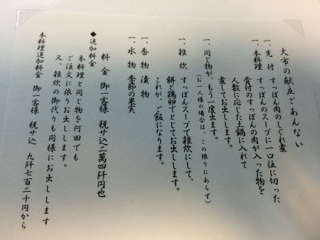 大市の献立ごあんない
一、先付 すっぽん肉のしぐれ煮
一、本料理 すっぽんのスープに一口位に切った
骨付のすっぽんの肉が入った物を
人数に応じて土鍋に入れて
煮してお出しします。
一、同じ物が、もう一度出ます。
(お一人様の場合は、この限りにあらず)
一、雑炊 すっぽんスープで雑炊にして、
餅と鶏卵でとじてお出しします。
これが、ご飯になります。
一、香物 漬物
一、水物 季節の果実
料金 御一客様 税サ込 二萬四千円也
◆追加料金
本料理と同じ物を何回でも
ご注文に依りお出しします。
又、雑炊の御代りも同様にお出しします
本料理追加料金 御一客様 税サ込 九千七百二十円から